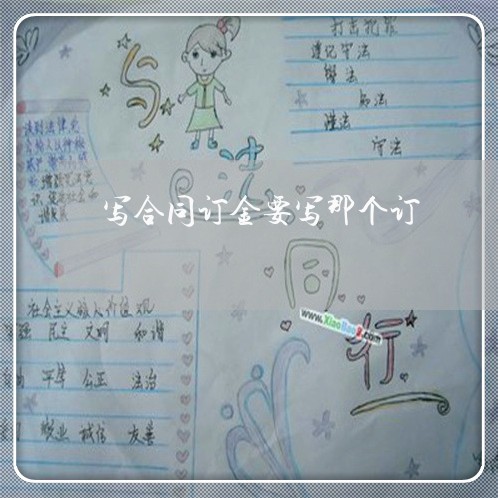 打击犯罪
遵纪守法
学法
知法
懂法
守法
与
法
同
行
写合同订金要写那个订
www.XiaoBao8.com
社会主义核心价值观
富强 民主 文明 和谐
自由 平等 公正 法治
敬业 诚信 友善